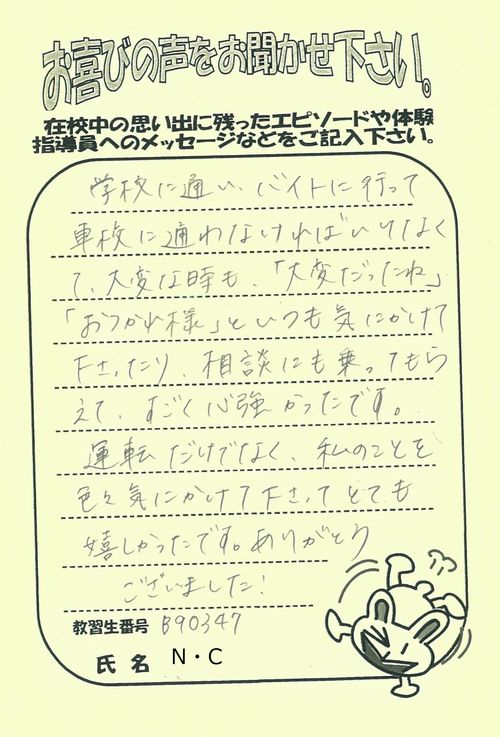 お喜びの声をお聞かせ下さい。
在校中の思い出に残ったエピソードや体験
指導員へのメッセージなどをご記入下さい。
学校に通い、バイトに行って
車校に通わなければいけなく
て、大変な時も、「大変だったね」
「おつかれ様」といつも気にかけて
下さったり、相談にも乗ってもら
えて、すごく心強かったです。
運転だけでなく、私のことを
色々気にかけて下さってとても
嬉しかったです。ありがとう
ございました!
教習生番号 B90347
氏名 N・C